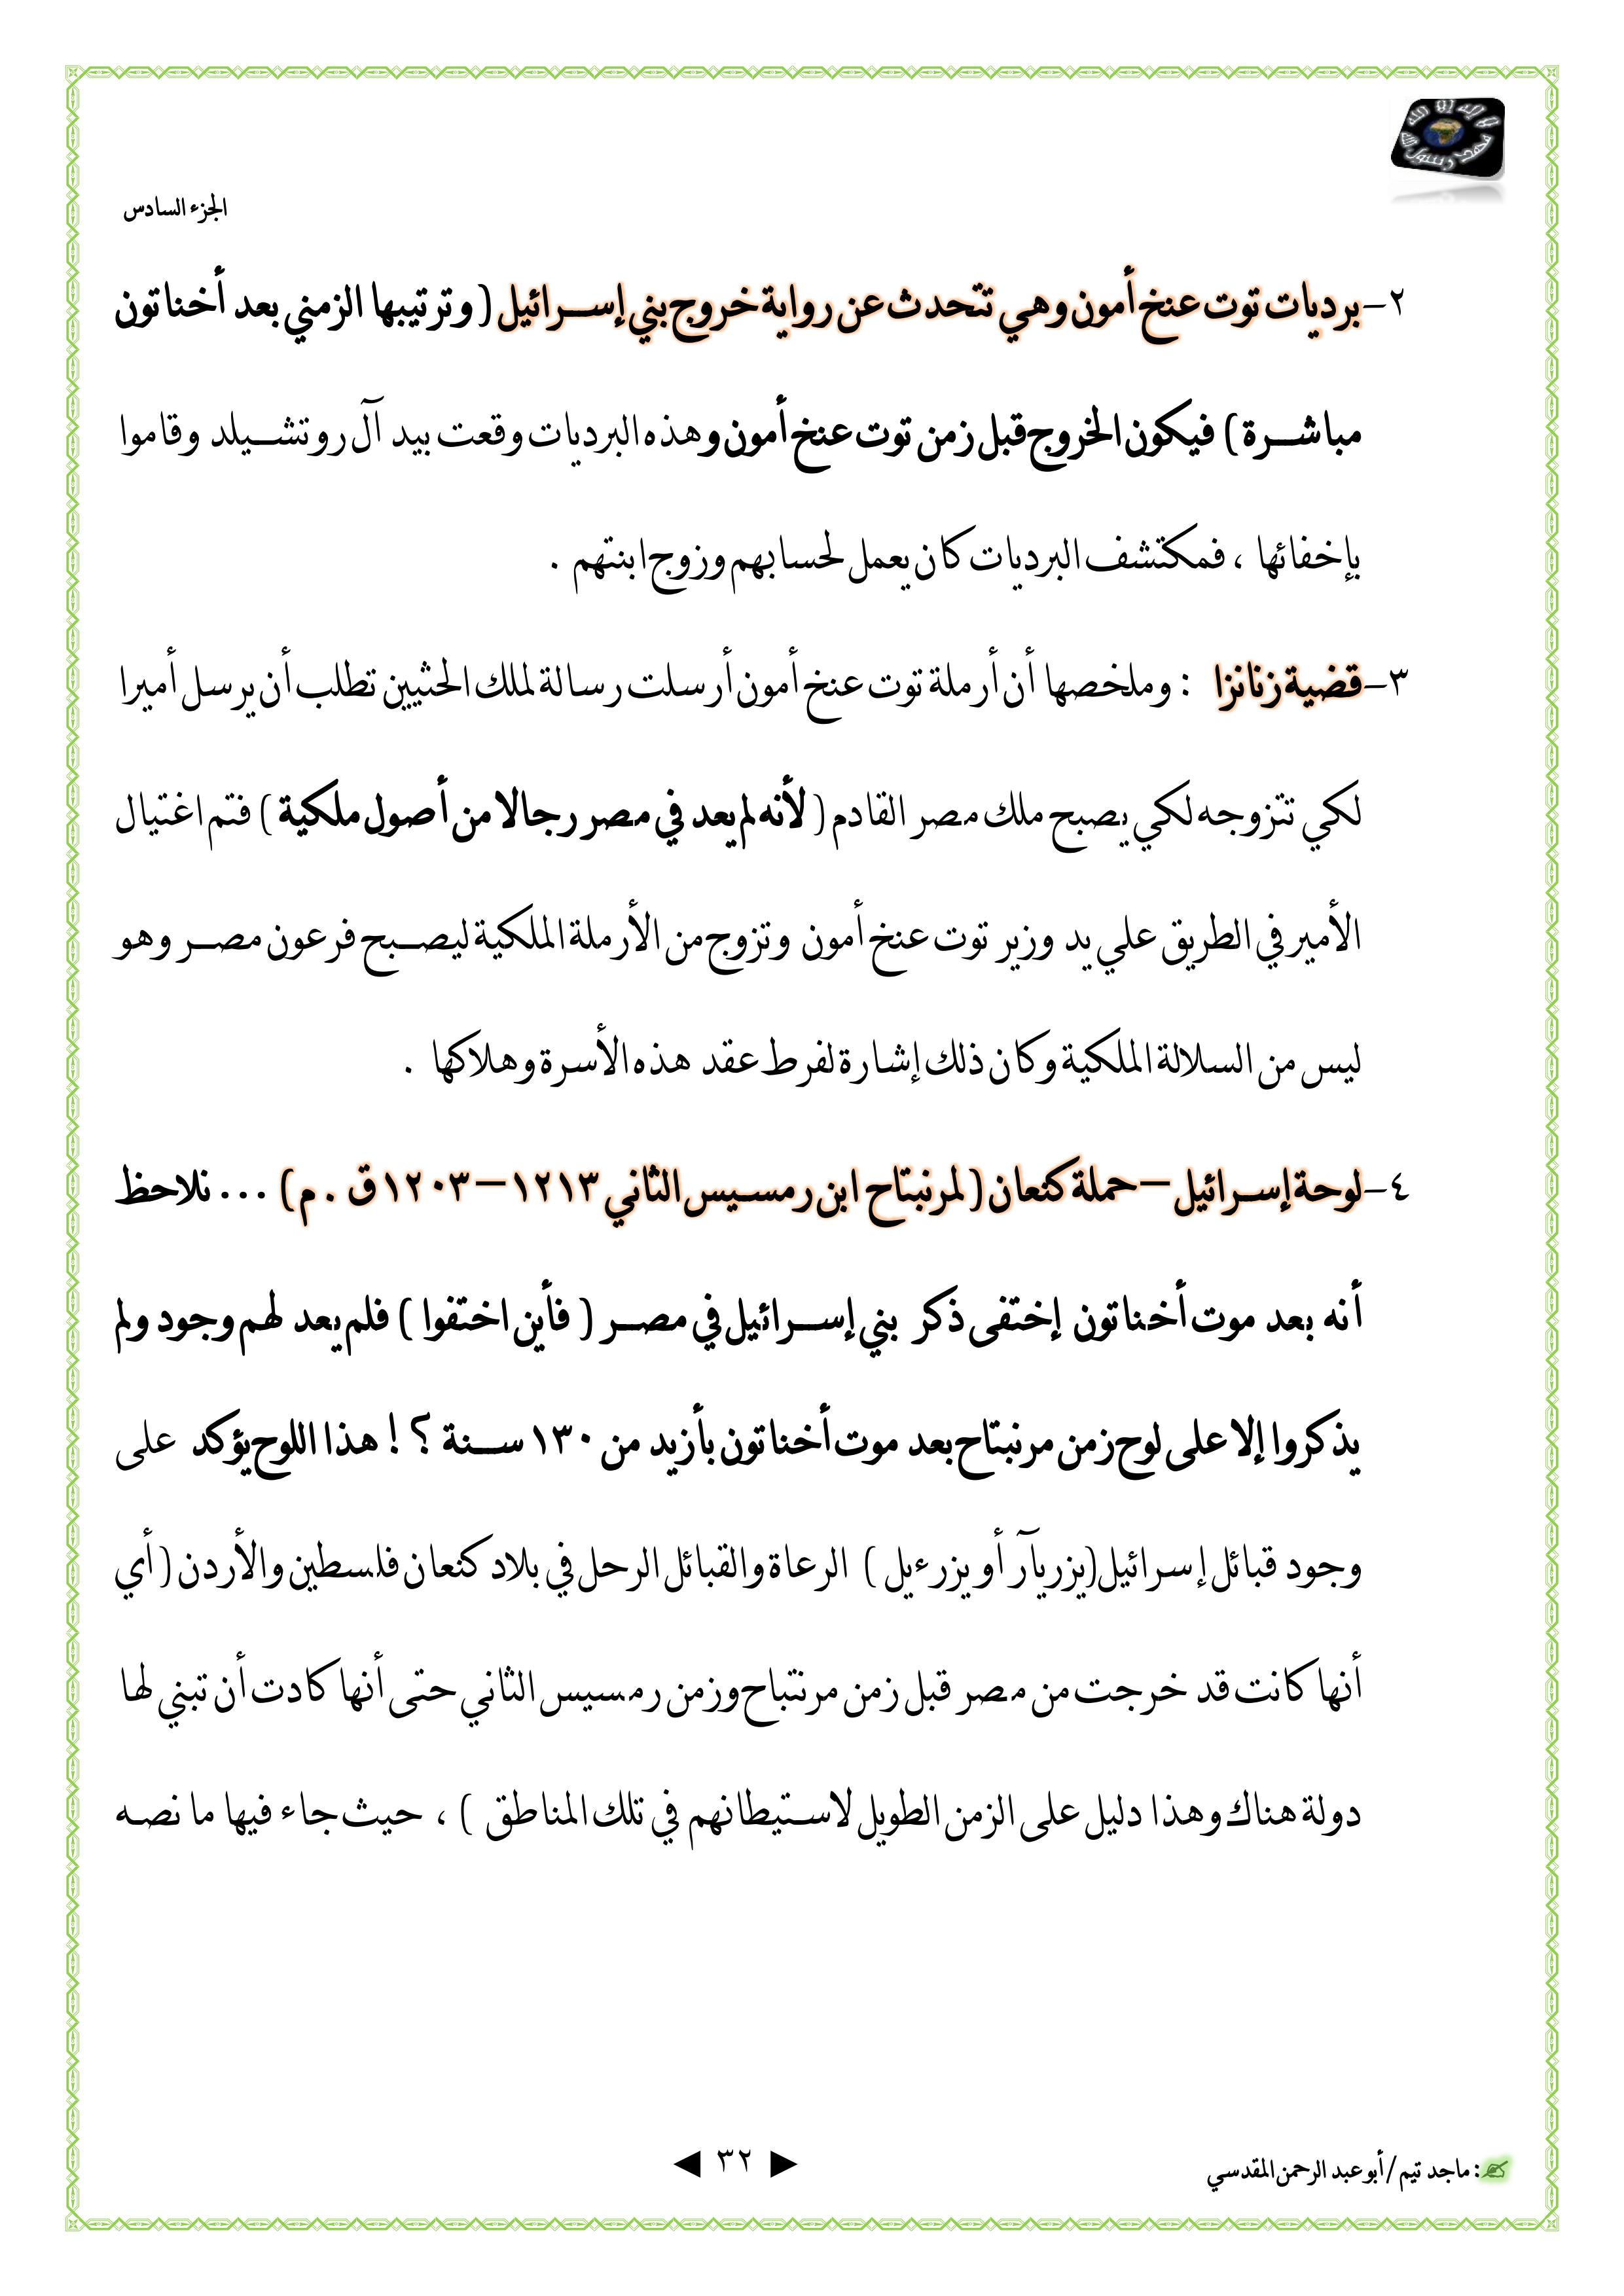 لا إله إلا الله
محمد رسول الله
الجزء السادس
٢-برديات توت عنخ أمون وهي تتحدث عن رواية خروج بني إسرائيل ( وترتيبها الزمني بعد أخناتون
مباشرة ) فيكون الخروج قبل زمن توت عنخ أمون وهذه البرديات وقعت بيد آل روتشيلد وقاموا
بإخفائها ، فمكتشف البرديات كان يعمل لحسابهم وزوج ابنتهم .
٣-قضية زنانزا : وملخصها أن أرملة توت عنخ أمون أرسلت رسالة لملك الحثيين تطلب أن يرسل أميرا
لكي تتزوجه لكي يصبح ملك مصر القادم ( لأنه لم يعد في مصر رجالا من أصول ملكية ) فتم اغتيال
الأمير في الطريق علي يد وزير توت عنخ أمون وتزوج من الأرملة الملكية ليصبح فرعون مصر وهو
ليس من السلالة الملكية وكان ذلك إشارة لفرط عقد هذه الأسرة وهلاكها .
٤-لوحة إسرائيل – حملة كنعان ( لمرنبتاح ابن رمسيس الثاني ١٢١٣ – ١٢٠٣ ق . م ) ... نلاحظ
أنه بعد موت أخناتون إختفى ذكر بني إسرائيل في مصر ( فأين اختفوا ) فلم يعد لهم وجود ولم
يذكروا إلا على لوح زمن مرنبتاح بعد موت أخناتون بأزيد من ١٣٠ سنة ؟ ! هذا اللوح يؤكد على
وجود قبائل إسرائيل (يزريآر أو يزرءيل ) الرعاة والقبائل الرحل في بلاد كنعان فلسطين والأردن ( أي
أنها كانت قد خرجت من مصر قبل زمن مرنتباح وزمن رمسيس الثاني حتى أنها كادت أن تبني لها
دولة هناك وهذا دليل على الزمن الطويل لاستيطانهم في تلك المناطق ) ، حيث جاء فيها ما نصه
: ماجد تيم / أبو عبد الرحمن المقدسي
► ٣٢ ◄